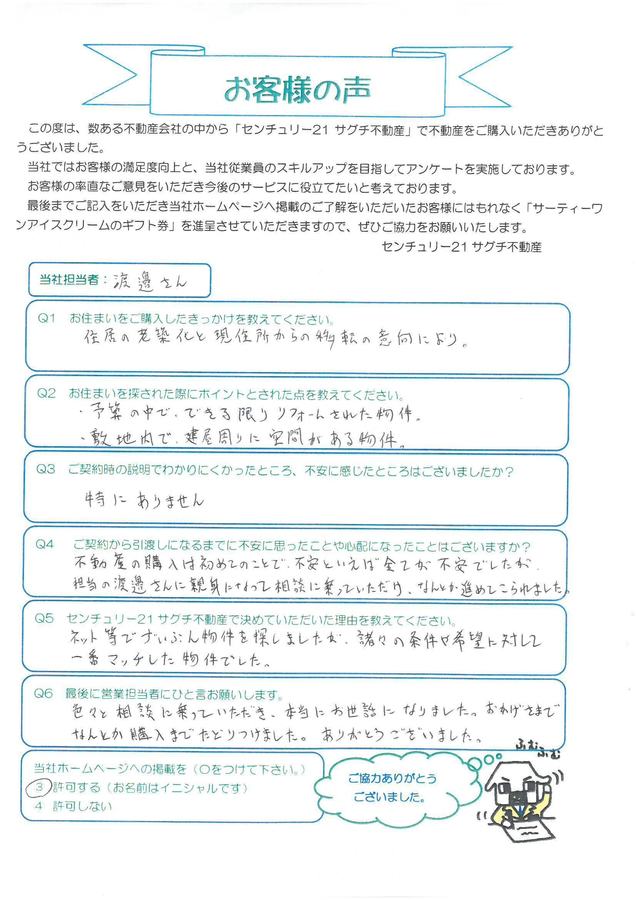 お客様の声
この度は、数ある不動産会社の中から「センチュリー21 サグチ不動産」で不動産をご購入いただきありがと
うございました。
当社ではお客様の満足度向上と、当社従業員のスキルアップを目指してアンケートを実施しております。
お客様の率直なご意見をいただき今後のサービスに役立てたいと考えております。
最後までご記入をいただき当社ホームページへ掲載のご了解をいただいたお客様にはもれなく「サーティーワ
ンアイスクリームのギフト券」を進呈させていただきますので、ぜひご協力をお願いいたします。
センチュリー21 サグチ不動産
当社担当者：渡邊さん
Q1 お住まいをご購入したきっかけを教えてください。
住居の老築化と現住所からの移転の意向により。
Q2 お住まいを探された際にポイントとされた点を教えてください。
・予算の中で、できる限りリフォームされた物件。
・敷地内で、建屋周りに空間がある物件。
Q3 ご契約時の説明でわかりにくかったところ、不安に感じたところはございましたか？
特にありません
Q4 ご契約から引渡しになるまでに不安に思ったことや心配になったことはございますか？
不動産の購入は初めてのことで、不安といえば全てが不安でしたが、
担当の渡邊さんに親身になって相談に乗っていただけ、なんとか進めてこられました。
Q5 センチュリー21 サグチ不動産で決めていただいた理由を教えてください。
ネット等でずいぶん物件を探しましたが、諸々の条件や希望に対して
一番マッチした物件でした。
Q6 最後に営業担当者にひと言お願いします。
色々と相談に乗っていただき、本当にお世話になりました。おかげさまで
なんとか購入までたどりつけました。ありがとうございました。
当社ホームページへの掲載を（〇をつけて下さい。）
3 許可する（お名前はイニシャルです）
4 許可しない
ご協力ありがとう
ございました。
ふむふむ